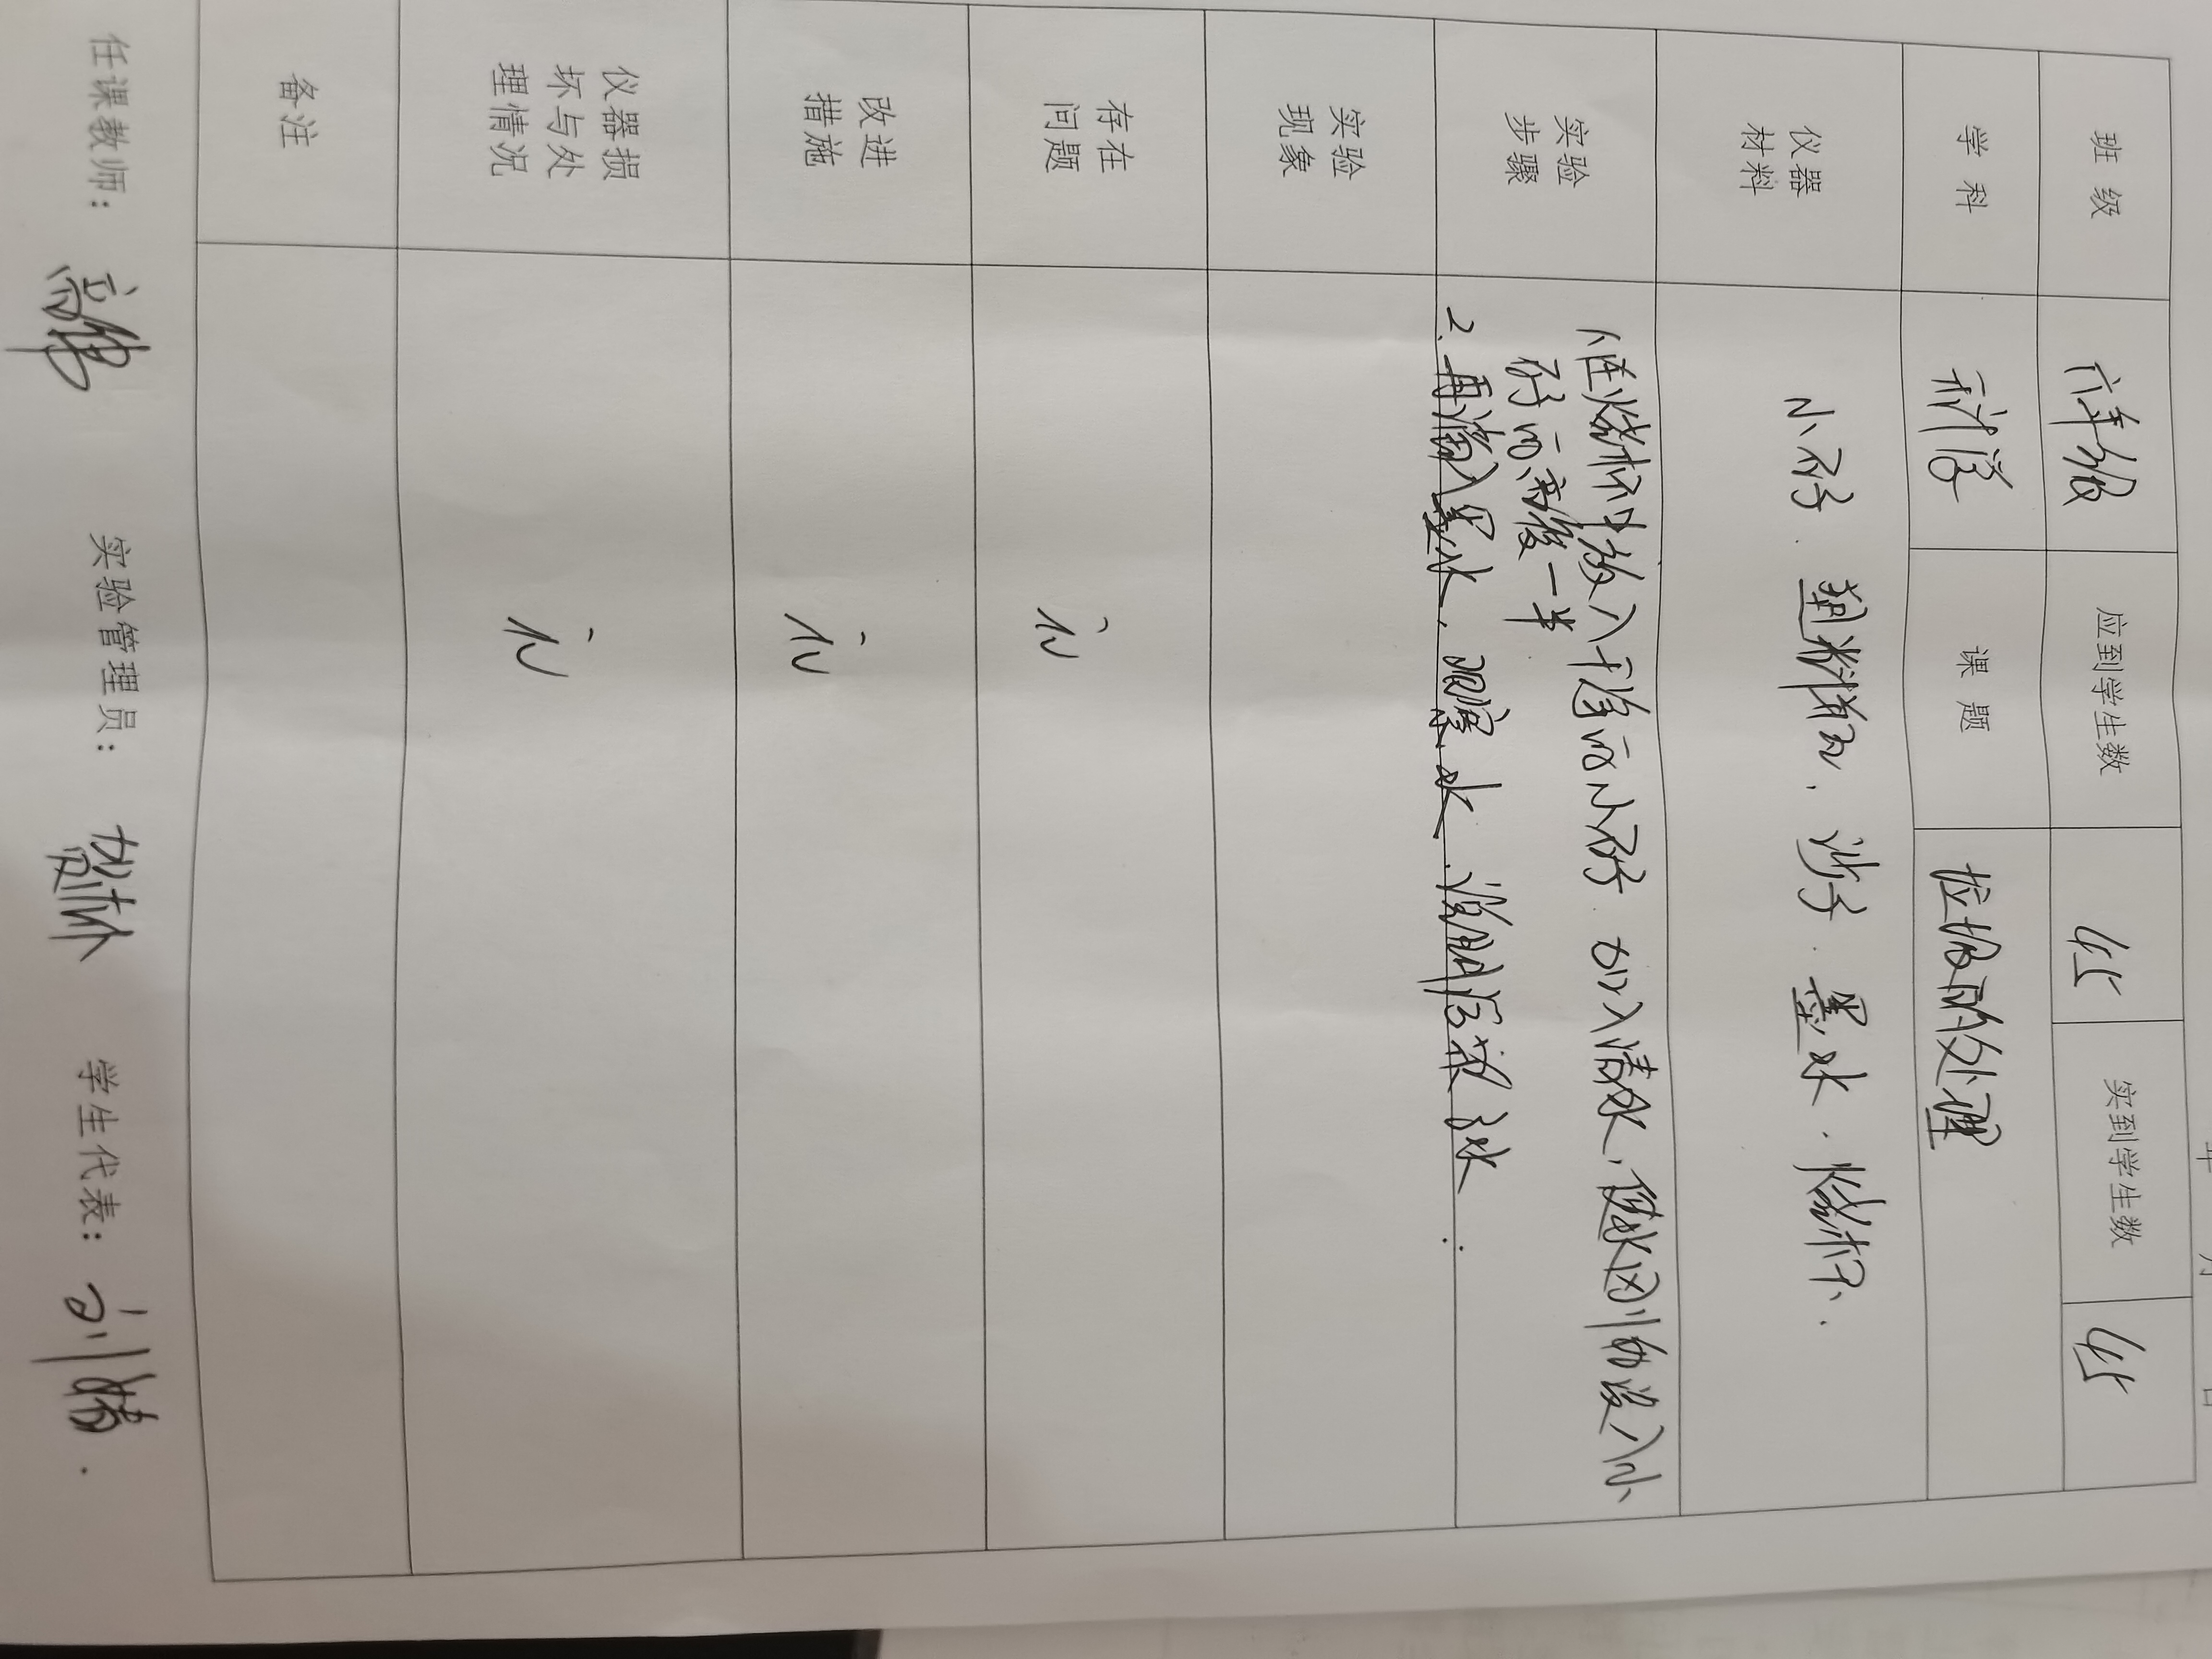 年 月 日
班 级 六年级 应到学生数 45 实到学生数 45
学 科 科学 课 题 垃圾的处理
仪器
材料
小石子、塑料箱、沙子、墨水、烧杯、
实验
步骤
1、在烧杯中放入干净的小石子、加入清水,使水刚好没入小
石子的高度一半
2、再滴入墨水,观察、水、
实验
现象
存在
问题
无
改进
措施
无
仪器损
坏与处
理情况
无
备注
任课教师: 实验管理员: 学生代表: